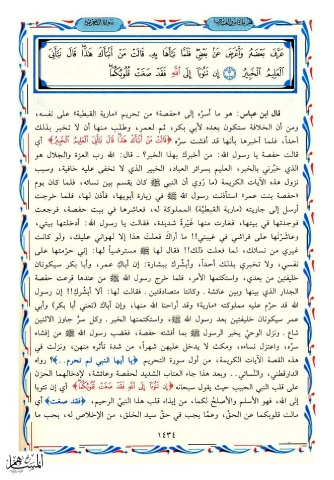 سورة التحريم
عَرَّفَ بَعْضَهُ وَأَعْرَضَ عَنْ بَعْضٍ فَلَمَّا نَبَّأَهَا بِهِ قَالَتْ مَنْ أَنْبَأَكَ هَذَا قَالَ نَبَّأَنِيَ
الْعَلِيمُ الْخَبِيرُ ﴿٣﴾ إِنْ تَتُوبَا إِلَى اللَّهِ فَقَدْ صَغَتْ قُلُوبُكُمَا
قال ابن عباس: هو ما أسرَّه إلى «حفصة» من تحريم «مارية القبطية» على نفسه،
ومن أن الخلافة ستكون بعده لأبي بكر، ثم لعمر، وطلب منها أن لا تخبر بذلك
أحداً، فلما أخبرها بأنها قد أفشت سره ﴿قَالَتْ مَنْ أَنْبَأَكَ هَذَا قَالَ نَبَّأَنِيَ الْعَلِيمُ الْخَبِيرُ﴾ أي
قالت حفصة يا رسول الله: من أخبرك بهذا الخبر؟.. قال: الله رب العزة والجلال هو
الذي خبَّرني بالخبر، العليم بسرائر العباد، الخبير الذي لا تخفى عليه خافية، وسبب
نزول هذه الآيات الكريمة (ما رُوي أن النبي ﷺ كان يقسم بين نسائه، فلما كان يوم
«حفصة بنت عمر» استأذنت رسول الله ﷺ في زيارة أبويها، فأذن لها، فلما خرجت
أرسل إلى جاريته (مارية القبطيَّة) المملوكة له، فعاشرها في بيت حفصة، فرجعت
فوجدتها في بيتها، فغارت منها غَيْرة شديدة، فقالت يا رسول الله: أدخلتها بيتي،
وعاشَرْتَها على فراشي في غيبتي!! ما أراك فعلتَ هذا إلا لهواني عليك، ولو كانت
غيري من نسائك، لما فعلت ذلك!! فقال لها ﷺ مسترضياً لها: إني حرَّمتها على
نفسي، ولا تخبري بذلك أحداً، وأبشِّرك ببشارة: إن أباك عمر، وأبا بكر سيكونان
خليفتين من بعدي، واستكتمها الأمر، فلما خرج رسول الله ﷺ من عندها قرعت حفصة
الجدار الذي بينها وبين عائشة ـ وكانتا متصادقتين ـ فقالت لها: ألا أبشِّرك!! إن رسول
الله قد حرَّم عليه مملوكته «مارية» وقد أراحنا الله منها، وإن أباك (تعني أبا بكر) وأبي
عمر سيكونان خليفتين بعد رسول الله ﷺ، واستكتمتها الخبر ـ وكل سرٍّ جاوز الاثنين
شاع ـ ونزل الوحيُ يخبر الرسول ﷺ بما أفشته حفصة، فغضب رسول الله ﷺ من إفشاء
سرِّه، واعتزل نساءه، ومكث لا يدخل عليهن شهراً، من شدة تأثره منهن، ونزلت في
هذه القصة الآيات الكريمة، من أول سورة التحريم ﴿يا أيها النبي لم تحرم..﴾؟ رواه
الدارقطني، والنَّسائي.. وبعد هذا جاء العتاب الشديد لحفصة وعائشة، لإدخالهما الحزن
على قلب النبي الحبيب حيث يقول سبحانه ﴿إِنْ تَتُوبَا إِلَى اللَّهِ فَقَدْ صَغَتْ قُلُوبُكُمَا﴾ أي إن تتوبا
إلى الله، فهو الأسلم والأصلح لكما، من إيذاء قلب هذا النبي الرحيم، ﴿فقد صغت﴾ أي
مالت قلوبكما عن الحقِّ، وعمَّا يجب في حقِّ سيد الخلق، من الإخلاص له، بحب ما
١٤٣٤